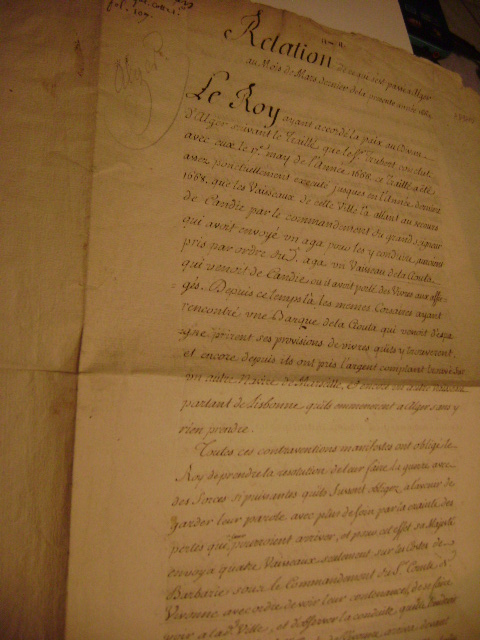 Relation de ce qui s'est passé à Alger
au Mois de Mars dernier de la presente année
Le Roy ayant accordé la paix au Divan
d'Alger suivant le Traitté que le Sr. Trubert conclut
avec eux le may de l'Année 1668. ce Traitté a été
assez ponctuellement executé jusques en l'Année derniere
1668. que les Vaisseaux de cette Ville là, allant au secours
de Candie par le commandement du grand seigneur
qui avoit envoyé un aga pour les y conduire, auroient
pris par ordre du d. aga un Vaisseau de la Ciouta
qui venoit de Candie, où il avoit porté des Vivres aux assie-
gés. Depuis ce temps là les memes Corsaires ayant
rencontré une Barque de la Ciouta qui venoit d'espa
gne, prirent ses provisions de vivres qu'ils y trouverent,
et encore depuis ils ont pris l'argent comptant trouvé sur
un autre Navire de Marseille, et encore un autre
partant de Lisbonne qu'ils emmenerent a Alger sans y
rien prendre.
Toutes ces contraventions manifestes ont obligé le
Roy de prendre la resolution de leur faire la guerre avec
des Forces si puissantes qu'ils fussent obligez, a l'avenir de
garder leur parole avec plus de soin par la crainte des
pertes qui pourroient arriver, et pour cet effet sa Majesté
envoya quatre Vaisseaux seulement sur les Costes de
Barbarie sous le Commandement du Sr. Comte de
Vivonne, avec ordre de voir leur contenance, de se faire
voir a la d. Ville, et d'observer la conduite qu'ils